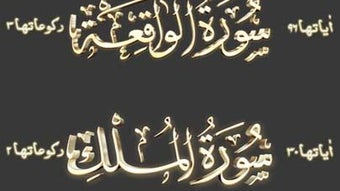 آياتها ٩٦ سُورَةُ الْوَاقِعَةِ ركوعاتها ٣
آياتها ٣٠ سُورَةُ الْمُلْكِ ركوعاتها ٢